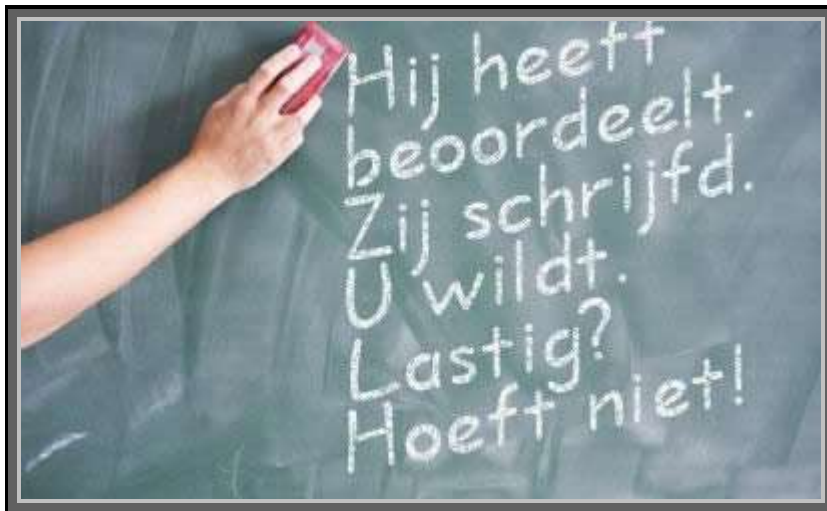 Hij heeft
beoordeelt.
Zij schrijfd.
U wildt.
Lastig?
Hoeft niet!